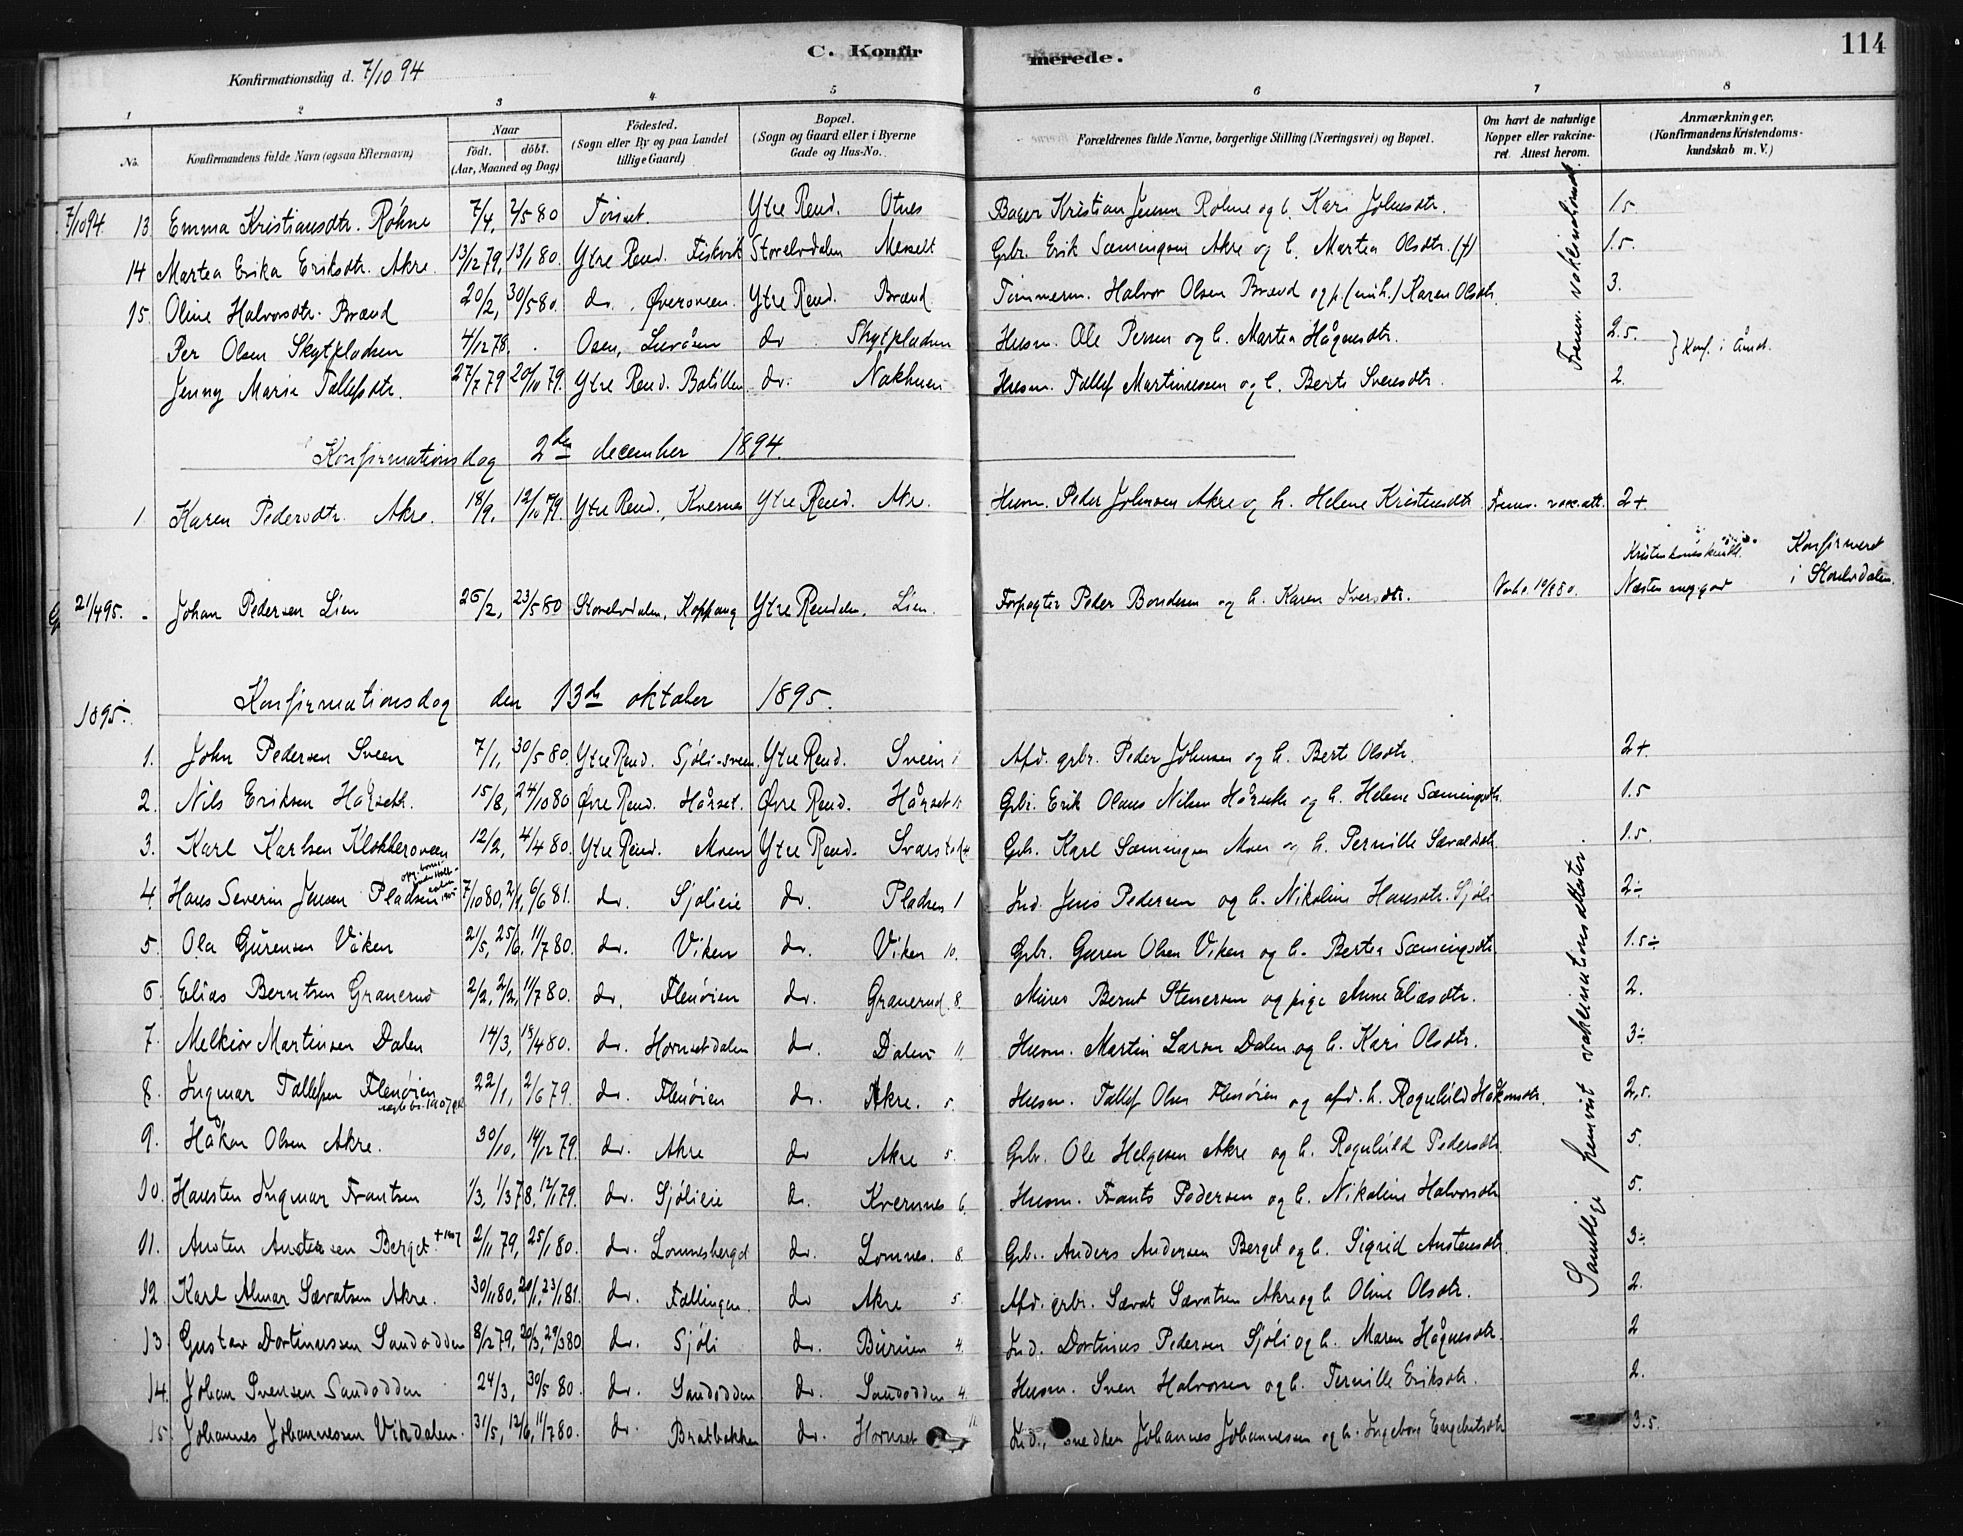 C. Konfir
merede.
114
Konfirmationsdag d. 7/10 94
1 2 3 4. 5 6 7 8
No. Konfirmandens fulde Navn (ogsaa Efternavn) Naar født. døbt. (Aar, Maaned og Dag) Fødested. (Sogn eller By og paa Landet tillige Gaard) Bopæl. (Sogn og Gaard eller i Byerne Gade og Hus-No. Forældrenes fulde Navne, borgerlige Stilling (Næringsvei) og Bopæl. Om havt de naturlige Kopper eller vakcineret. Attest herom. Anmærkninger. (Konfirmandens Kristendomskundskab m. V.)
7/10 94. 13 Emma Kristiansdtr. Røhne 7/4, 2/5 80 Ytre Rend. Otnes Kristian Jensen Røhne og h. Kari Johnsdtr. 1.5
14 Martea Erika Eriksdtr. Akre. 13/12 79, 13/1 80. Ytre Rend. Fiskvik Storelvdalen Messelt Gbr. Erik Sæmingsen Akre og h. Martea Olsdtr. (†) 1.5.
15. Oline Halvorsdtr. Brænd 20/2, 30/5 80. do. Øveroveen. Ytre Rend. Brænd Tømmerm. Halvor Olsen Brænd og p. (unh.) Karen Olsdtr. 3.
Per Olsen Skytpladsen 4/12 78. Osen, do Skytpladsen Husm. Ole Persen og h. Martea Hågensdtr. 2.5. } Konf. i Åmot.
Jenny Marie Tollefsdtr. 27/7 79 20/10 79. Ytre Rend. do. Husm. Tollef Martinussen og h. Berte Svensdtr. 2.
Konfirmationsdag 2den december 1894.
1 Karen Pedersdtr. Akre. 18/9, 12/10 79. Ytre Rend., Kvernes Ytre Rend. Akr. Husm. Peder Johnsen Akre og h. Helene Kristensdtr Frems. vac. att. 2+.
21/4 95. - Johan Pedersen Lien 26/2, 23/5 80 Storelvdalen, Koppang Ytre Rendalen, Lien. Forpagter Peder Bondesen og h. Karen Iversdtr. Næsten meg. god Konfirmeret i Storelvdalen.
1895. Konfirmationsdag den 13de oktober 1895.
1. John Pedersen Sveen 7/1, 30/5 80. Ytre Rend. Sjøli-sveen. Ytre Rend. Sveen 1 Afd. gbr. Peder Johnsen og h. Berit Olsdtr. 2+.
2. Nils Eriksen Hårseth. 15/8, 24/10 80 Øvre Rend. Hårset. Øvre Rend. Hårset Gbr. Erik Olaus Nilsen Hårseth og h. Helene Sæmingsdtr. 1.5
3. Karl Karlsen Klokkersveen 12/2, 4/4 80. Ytre Rend. Moen Ytre Rend. Gbr. Karl Sæmingsen Moen og h. Pernille Sævaldsdtr. 1.5.
4. Hans Severin Jensen Pladsen 7/10 80, 2/1, 6/6 81. do. Sjølieie do. Pladsen 1 Ind. Jens Pedersen og h. Nikoline Hansdtr. Sjøli 2÷
5. Ola Gurensen Viken 21/5, 25/6, 11/7 80. do. Viken do. Viken 10. Gbr. Guren Olsen Viken og h. Bertea Sæmingsdtr. 1.5÷
6. Elias Berntsen Granerud 2/2, 2/2, 11/7 80. do. Flenøien do. Granerud. 8. Murer Bernt Stenersen og pige Anne Eliasdtr. 2.
7. Melkior Martinsen Dalen 14/3, 18/4 80. do. Hornsetdalen do. Dalen 11. Husm. Martin Larsen Dalen og h. Kari Olsdtr. 3÷
8. Ingmar Tollefsen Flenøien 22/1, 2/6 79. do. Flenøien do. Akre. 5. Husm. Tollef Olsen Flenøien og afd. h. Ragnhild Håkonsdtr. 2,5.
9. Håkon Olsen Akre. 30/10, 14/12 79. do. Akre do Akre 5. Gbr. Ole Helgesen Akre og h. Ragnhild Pedersdtr. 5.
10. Hansten Ingmar Frantsen 1/3, 1/3 78, 12/1 79. do. Sjølieie do. Kvernnes 6. Husm. Frants Pedersen og h. Nikoline Halvorsdtr 5.
11. Austen Andersen Berget + 1907 2/11 79, 25/1 80. do. Lomnesberget do. Lomnes. 8. Gbr. Anders Andersen Berget og h. Sigrid Austensdtr. 3÷
12 Karl Almar Sævatsen Akre. 30/11 80, 20/1, 23/1 81. do. Fællingen. do Akre 5. Afd. gbr. Sævat Sævatsen Akre og h. Oline Olsdtr. 2.
13. Gustav Dortinussen Sandodden 8/12 79, 20/3, 29/3 80 do. Sjøli do. 4. Ind. Dortinus Pedersen Sjøli og h. Maren Hågensdtr. 2
14. Johan Svensen Sandodden 24/3, 30/5 80. do. Sandodden do. Sandodden 4. Husm. Sven Halvorsen og h. Pernille Eriksdtr. 2.
15. Johannes Johannessen Vikdalen. 31/5, 12/6, 11/7 80. do. Bratbakken do. Hornset 11. Ind., snedker Johannes Johannesen og h. Ingeborg Engebretsdtr 3.5.
Samtlige fremvist vakcinationsattester.